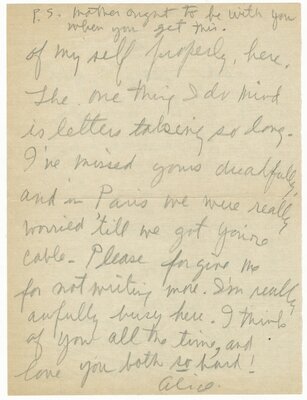 P.S. Mother ought to be with you
when you get this.
of my self properly, here.
The one thing I do mind
is letters taking so long.
I've missed yours dreadfully,
and in Paris we were really
worried 'till we got your
cable. Please forgive me
for not writing more. I'm really
awfully busy here. I think
of you all the time, and
love you both so hard!
Alice.